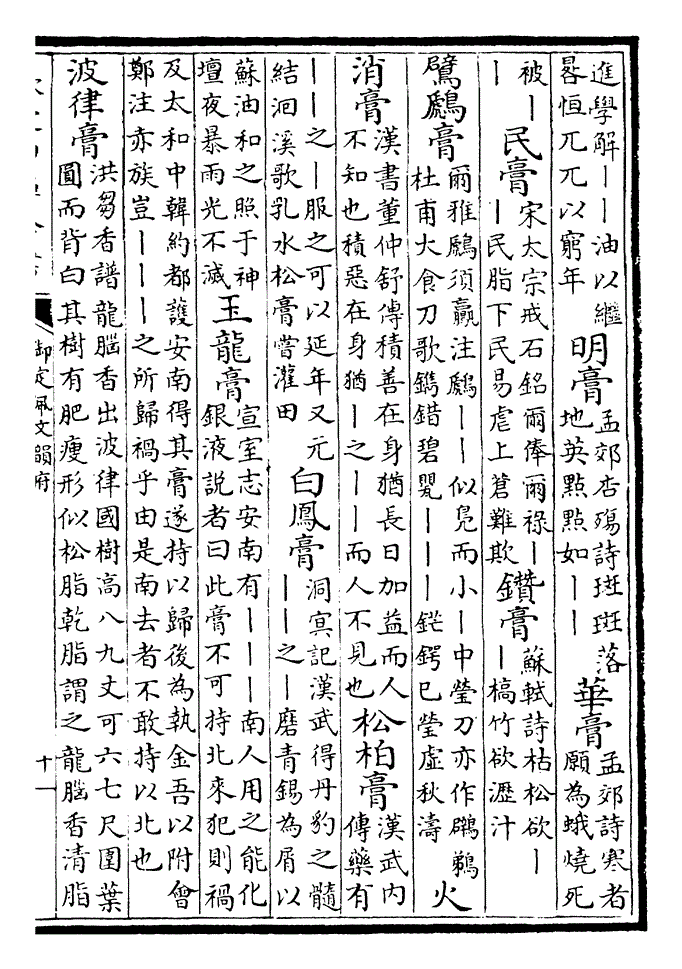 進學解——油以繼
晷恒兀兀以窮年
明膏
孟郊杏殤詩斑斑落
地英點點如——
華膏
孟郊詩寒者
願為蛾燒死
被—
—
民膏
宋太宗戒石銘爾俸爾祿—
—民脂下民易虐上蒼難欺
鑽膏
蘇軾詩枯松欲—
—槁竹欲瀝汁
鷿鷉膏
爾雅鷉須鸁注鷉——似鳧而小—中瑩刀亦作鸊鵜
杜甫大食刀歌鐫錯碧甖———鋩鍔已瑩虛秋濤
火
消膏
漢書董仲舒傳積善在身猶長日加益而人
不知也積惡在身猶—之——而人不見也
松柏膏
漢武内
傳藥有
——之—服之可以延年又元
結洄溪歌乳水松膏嘗灌田
白鳳膏
洞冥記漢武得丹豹之髓
——之—磨青錫為屑以
蘇油和之照于神
壇夜暴雨光不滅
玉龍膏
宣室志安南有———南人用之能化
銀液説者曰此膏不可持北來犯則禍
及太和中韓約都護安南得其膏遂持以歸後為執金吾以附會
鄭注亦族豈———之所歸禍乎由是南去者不敢持以北也
波律膏
洪芻香譜龍腦香出波律國樹高八九丈可六七尺圍葉
圓而背白其樹有肥瘦形似松脂乾脂謂之龍腦香清脂
御定佩文韻府
十一